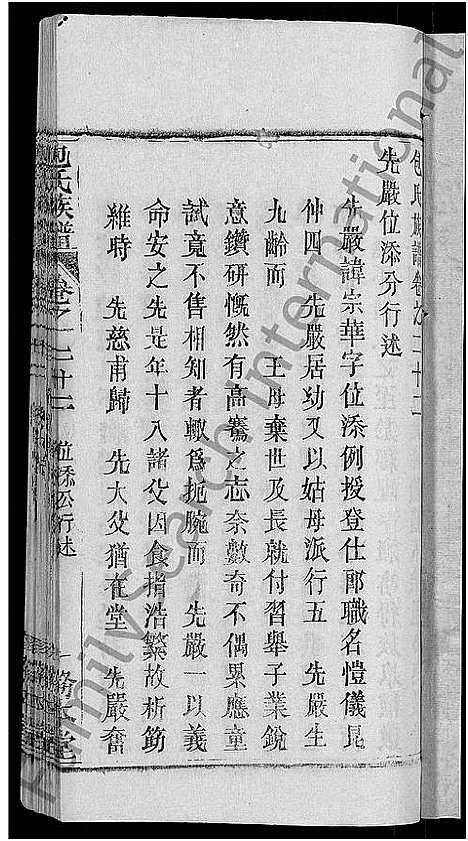 包氏族譜卷之二十二
先嚴位添公行述
先嚴諱宗華字位添例授登仕郎職名愷儀昆
仲四　先嚴居幼又以姑母派行五　先嚴生
九齡而　王母棄世及長就付習舉子業銳
意鑽研慨然有高騫之志奈數奇不偶累應童
試竟不售相知者輒爲扼腕而　先嚴一以義
命安之先是年十八諸父因食指浩繁故析箸
維時　先慈甫歸　先大父猶在堂　先嚴奮
包氏族譜　卷之二十二　位添公行述　一
FamilySearch International